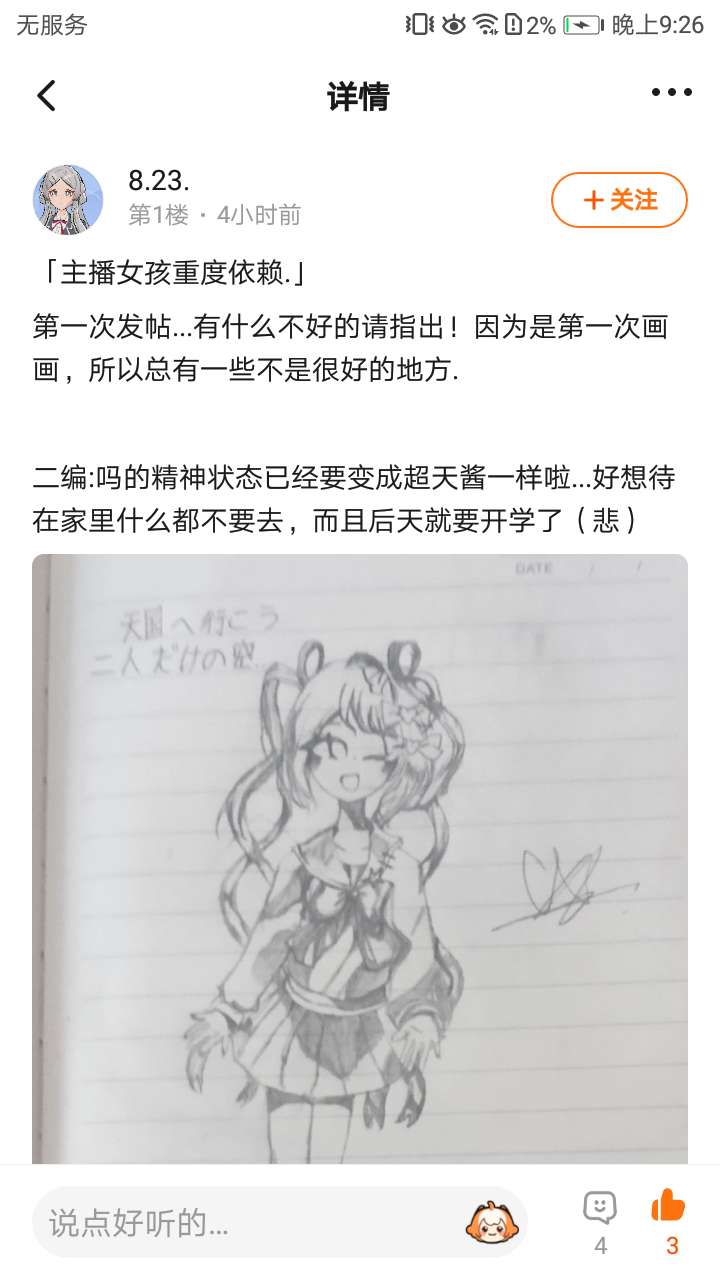 无服务 2% 晚上9:26
详情
8.23.
第1楼 · 4小时前
+ 关注
「主播女孩重度依赖.」
第一次发帖...有什么不好的请指出！因为是第一次画
画，所以总有一些不是很好的地方.
二编:吗的精神状态已经要变成超天酱一样啦...好想待
在家里什么都不要去，而且后天就要开学了（悲）
DATE / /
天国へ行こう
二人だけの
说点好听的...
4
3